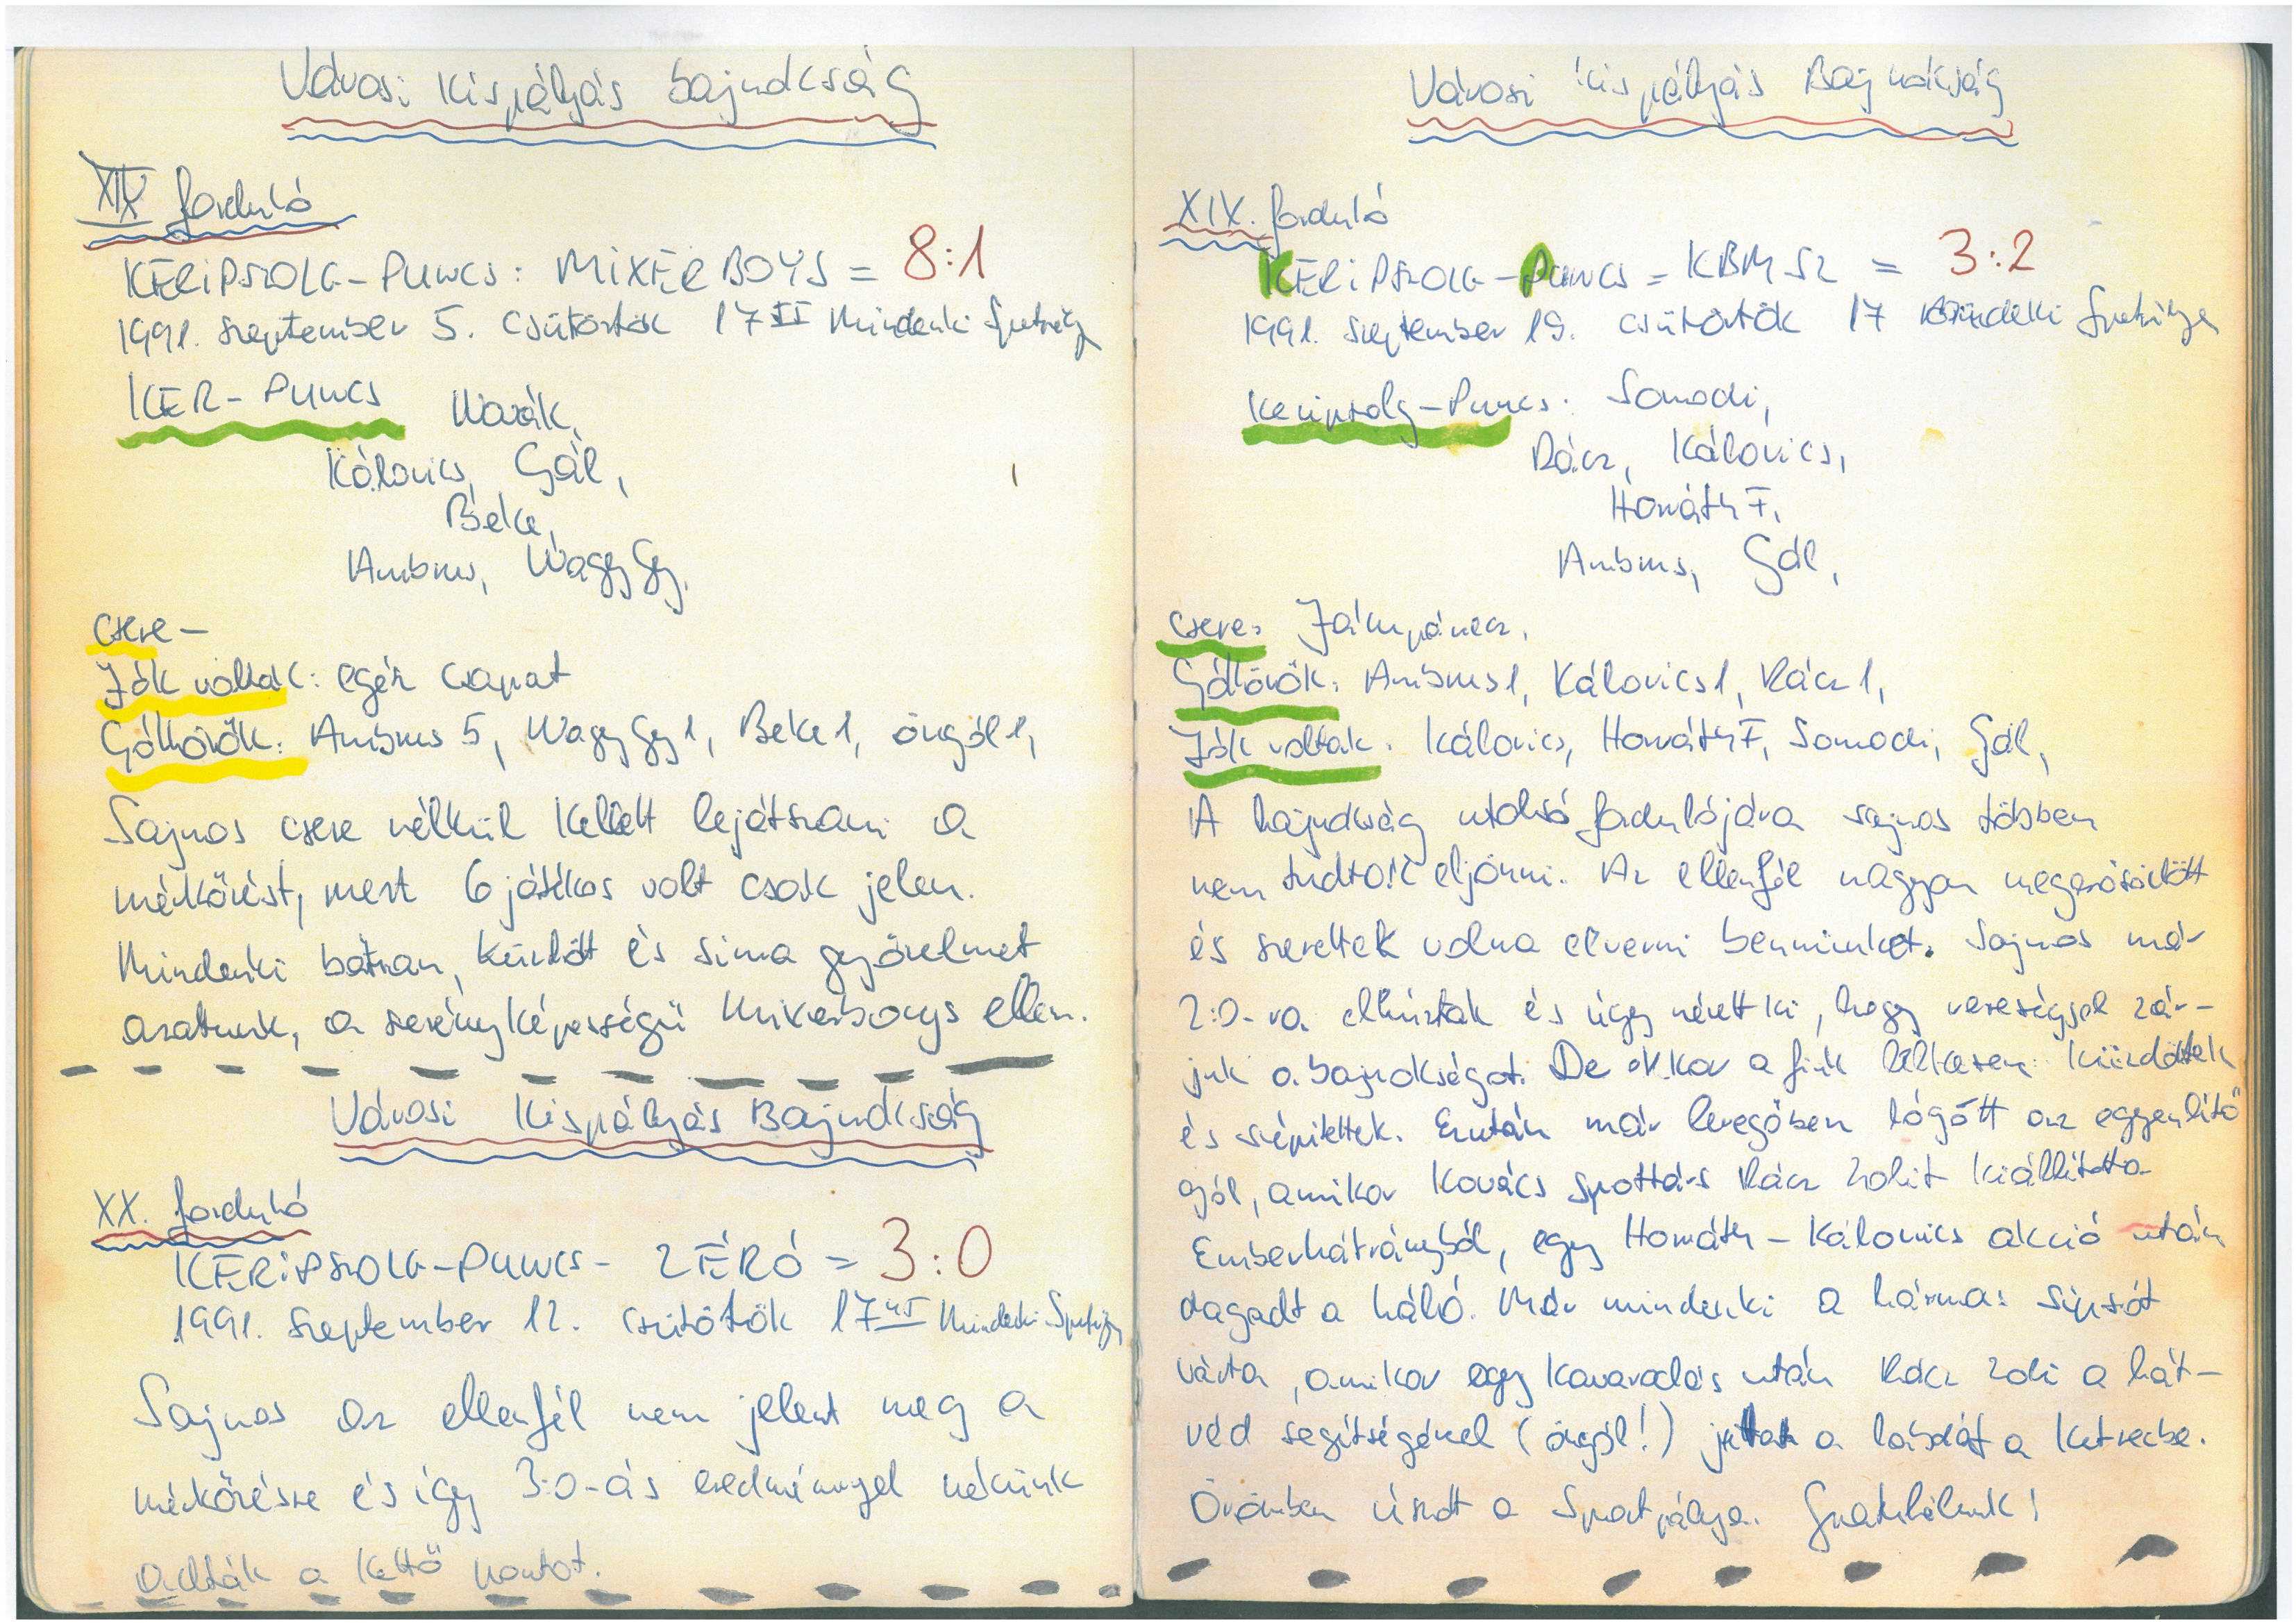 Városi Kispályás bajnokság
XIX forduló
KERIPSZOLG-PUNCS: MIXER BOYS = 8:1
1991. szeptember 5. csütörtök 17 Mindenki Sportpálya
KER-PUNCS Novák,
Kálovics, Gál,
Beke,
Ambrus, Nagy Gy,
csere-
Jók voltak: egész csapat
Góllövők: Ambrus 5, Nagy Gy 1, Beke 1, öngól 1,
Sajnos csere nélkül kellett lejátszani a
mérkőzést, mert 6 játékos volt csak jelen.
Mindenki bátran, küzdött és sima győzelmet
arattunk, a szerény képességű Mixerboys ellen.
Városi Kispályás Bajnokság
XX. forduló
KERIPSZOLG-PUNCS - ZÉRÓ = 3:0
1991. szeptember 12. csütötök 17 Mindenki Sportpálya
Sajnos az ellenfél nem jelent meg a
mérkőzésre és így 3:0-ás eredménnyel nékünk
adták a kettő pontot.
Városi Kispályás Bajnokság
XIX. forduló
KERIPSZOLG-PUNCS = KBMSZ = 3:2
1991. szeptember 19. csütörtök 17 Mindeki Sportpálya
Keripszolg-Puncs: Somodi,
Rácz, Kálovics,
Horváth F,
Ambrus, Gál,
csere: Jámpánecz,
Góllövők: Ambrus 1, Kálovics 1, Rácz 1,
Jók voltak: Kálovics, Horváth F, Somodi, Gál,
A bajnokság utolsó fordulójára sajnos többen
nem tudtok eljönni. Az ellenfél nagyon megerősödött
és szerettek volna elverni bennünket. Sajnos már
2:0-ra elhúztak és úgy nézett ki, hogy vereséggel zár-
juk a bajnokságot. De ekkor a fiúk lelkesen küzdöttek
és szépítettek. Ezután már levegőben lógott az egyenlítő
gól, amikor Kovács sporttárs Rácz Zolit kiállította
Emberhátrányból, egy Horváth - Kálovics akció után
dagadt a háló. Már mindenki a hármas sípszót
várta, amikor egy kavarodás után Rácz Zoli a hát-
véd segítségével (öngól!) a labdát a ketrecbe.
Örömben úszott a Sportpálya. Gratulálunk!